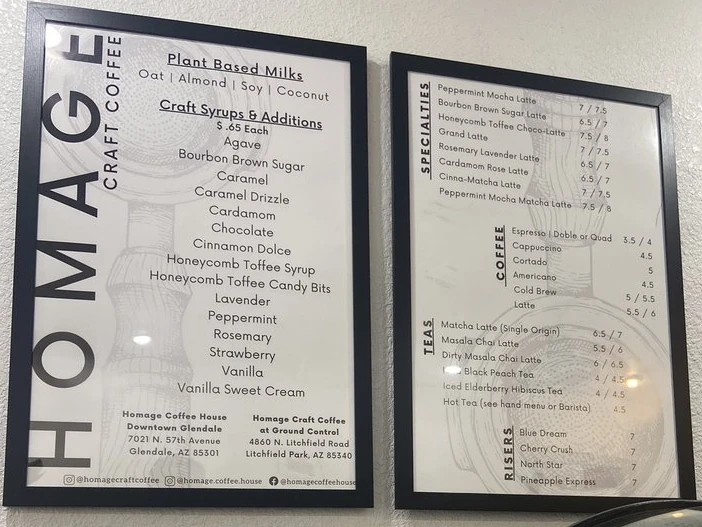 HOMAGE
CRAFT COFFEE
Plant Based Milks
Oat | Almond | Soy | Coconut
Craft Syrups & Additions
$ .65 Each
Agave
Bourbon Brown Sugar
Caramel
Caramel Drizzle
Cardamom
Chocolate
Cinnamon Dolce
Honeycomb Toffee Syrup
Honeycomb Toffee Candy Bits
Lavender
Peppermint
Rosemary
Strawberry
Vanilla
Vanilla Sweet Cream
Homage Coffee House
Downtown Glendale
7021 N. 57th Avenue
Glendale, AZ 85301
Homage Craft Coffee
at Ground Control
4860 N. Litchfield Road
Litchfield Park, AZ 85340
@homagecraftcoffee @homage.coffee.house @homagecoffeehouse
SPECIALTIES
Peppermint Mocha Latte 7 / 7.5
Bourbon Brown Sugar Latte 6.5 / 7
Honeycomb Toffee Choco-Latte 7.5 / 8
Grand Latte 7 / 7.5
Rosemary Lavender Latte 6.5 / 7
Cardamom Rose Latte 6.5 / 7
Cinna-Matcha Latte 7 / 7.5
Peppermint Mocha Matcha Latte 7.5 / 8
COFFEE
Espresso | Doble or Quad 3.5 / 4
Cappuccino 4.5
Cortado 5
Americano 4.5
Cold Brew 5 / 5.5
Latte 5.5 / 6
TEAS
Matcha Latte (Single Origin) 6.5 / 7
Masala Chai Latte 5.5 / 6
Dirty Masala Chai Latte 6 / 6.5
Black Peach Tea 4 / 4.5
Iced Elderberry Hibiscus Tea 4 / 4.5
Hot Tea (see hand menu or Barista) 4.5
RISERS
Blue Dream 7
Cherry Crush 7
North Star 7
Pineapple Express 7